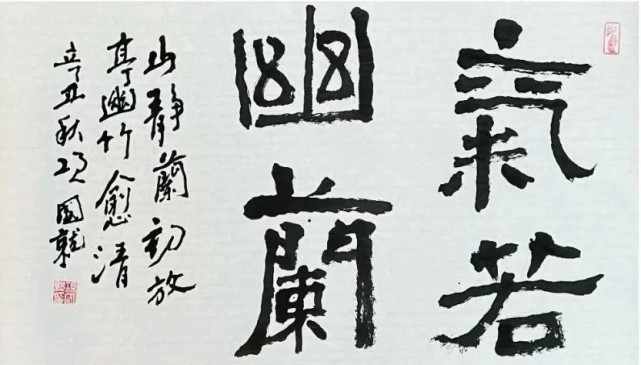 氣若
幽蘭
山靜蘭初放
亭幽竹愈清
辛丑秋項國就